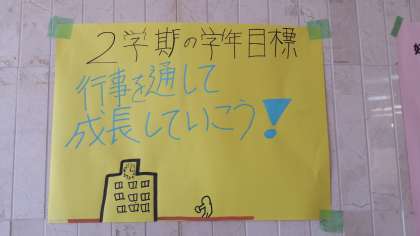 2学期の学年目標
行事を通して
成長していこう!